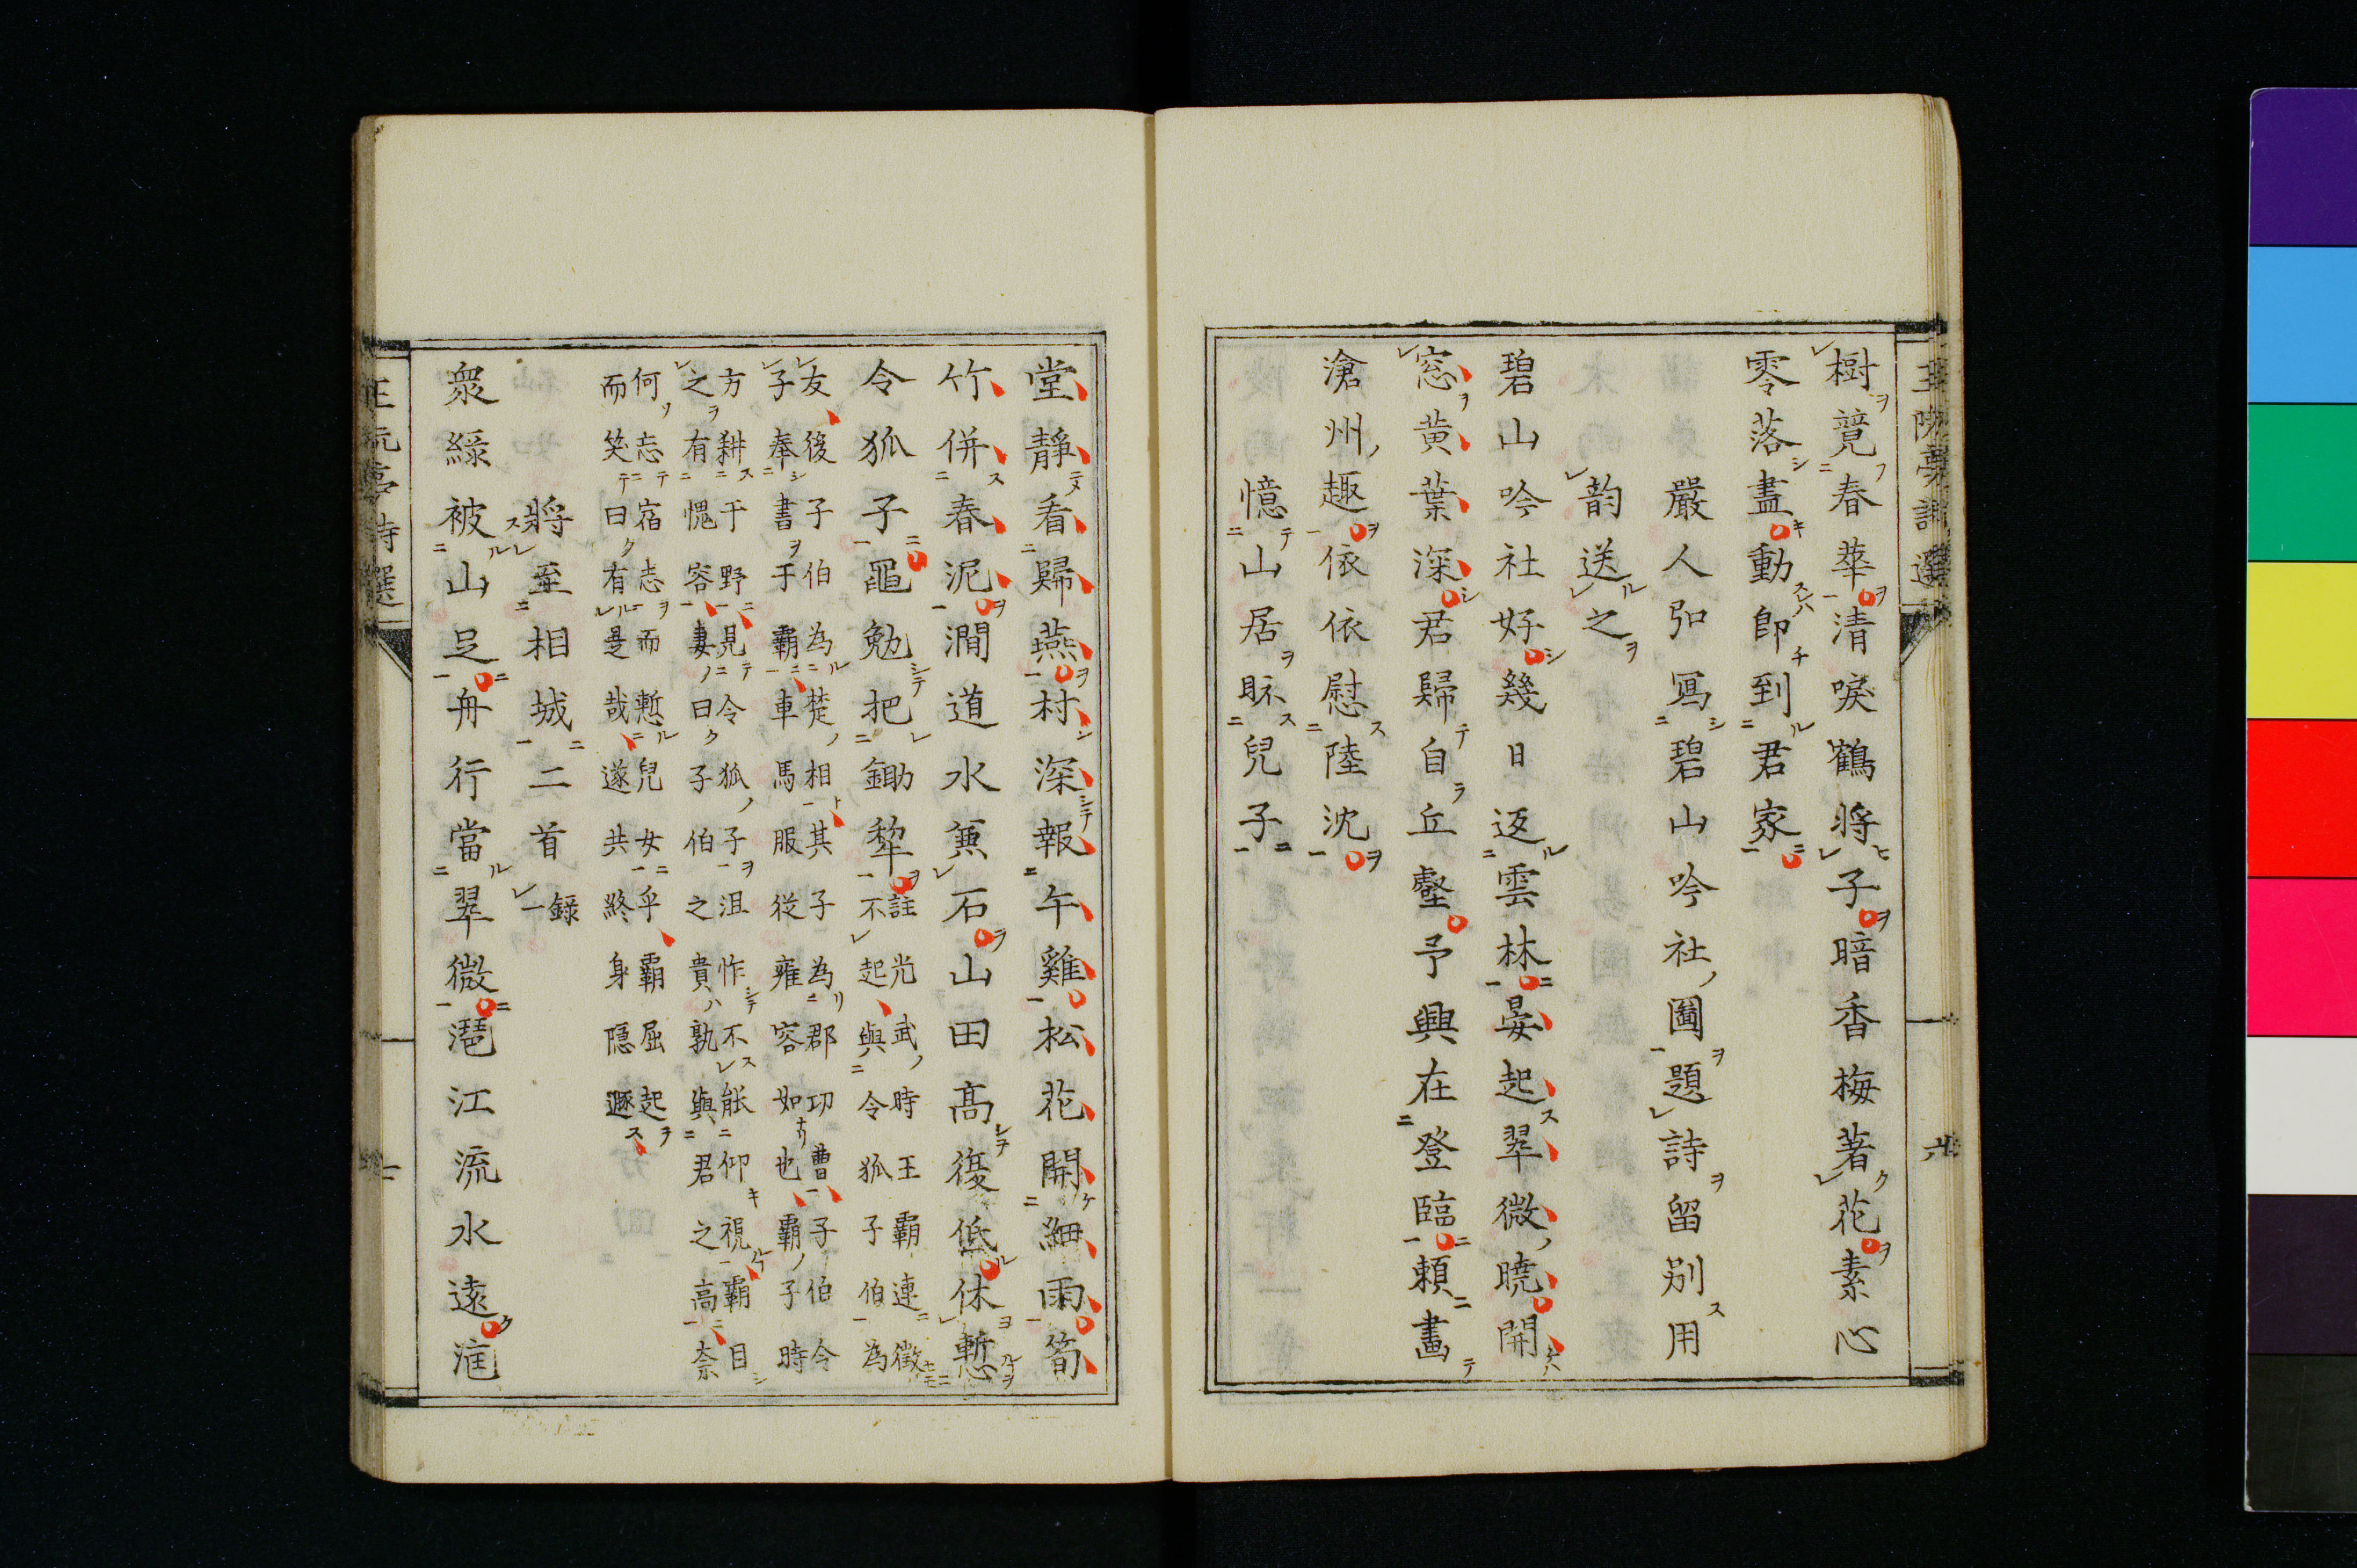 樹覓春華清唳鶴將子暗香梅著花素心
零落盡動卽到君家
嚴人弘寫碧山吟社圖題詩留别用
韵送之
碧山吟社好幾日返雲林晏起翠微曉開
窓黄葉深君歸自丘壑予興在登臨頼畫
滄州趣依依慰陸沈
憶山居眎兒子
堂靜看歸燕村深報午雞松花開細雨筍
竹併春泥澗道水兼石山田高復低休慙
令狐子黽勉把鋤犂
註光武時王霸連徵
不起與令狐子伯為
友後子伯為楚相其子為郡功曹子伯令
子奉書于霸車馬服從雍容如也霸子時
方耕于野見令狐子沮怍不能仰視霸目
之有愧容妻曰子伯之貴孰與君之高奈
何忘宿志而慙兒女乎霸屈起
而笑曰有是哉遂共終身隱遯
將至相城二首
録
一
衆綠被山足舟行當翠微濸江流水遠